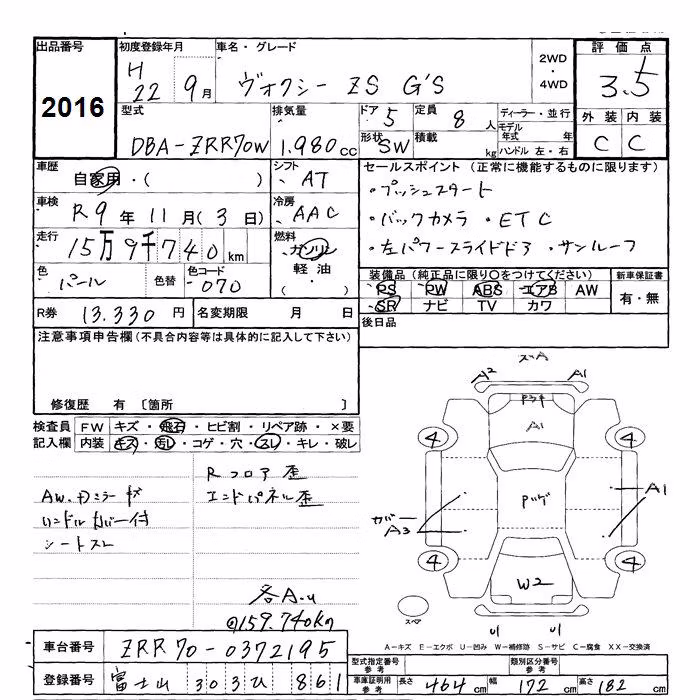 出品番号 初度登録年月 車名・グレード 2WD・4WD 評価点
2016 H22 9月 ヴォクシー ZS G'S 3.5
型式 排気量 ドア 5 定員 8人 ディーラー・並行 外装 内装
DBA-ZRR70W 1.980cc 形状 SW 積載 kg モデル年式 年 ハンドル 左・右 C C
車歴 自家用・( ) シフト AT セールスポイント (正常に機能するものに限ります)
・プッシュスタート
車検 R9年11月(3日) 冷房 AAC ・バックカメラ ・ETC
走行 15万9千740km 燃料 ガソリン 軽油 ・( ) ・左パワースライドドア ・サンルーフ
色 パール 色替 色コード 070 装備品(純正品に限り○をつけてください) 新車保証書
PS PW ABS エアB AW 有・無
SR ナビ TV カワ
R券 13.330円 名変期限 月 日 後日品
注意事項申告欄(不具合内容等は具体的に記入して下さい)
修復歴 有 〔箇所 〕
検査員 FW キズ・飛石・ヒビ割・リペア跡・×要
記入欄 内装 キズ・汚レ・コゲ・穴・スレ・キレ・破レ
Rフロア歪
AW、Dミラーキズ エンドパネル歪
ハンドルカバー付
シートスレ
各A.u
@159.740kg
A2 A1
A1
4 4
カバー A3 A1
4 4
W2
スペア
U1 U1
A-キズ E-エクボ U-凹み W-補修跡 S-サビ C-腐食 XX-交換済
車台番号 ZRR70-0372195 型式指定番号 参考 類別区分番号 参考
登録番号 富士山 303 ひ 861 車庫証明用 参考 長さ 464cm 幅 172cm 高さ 182cm